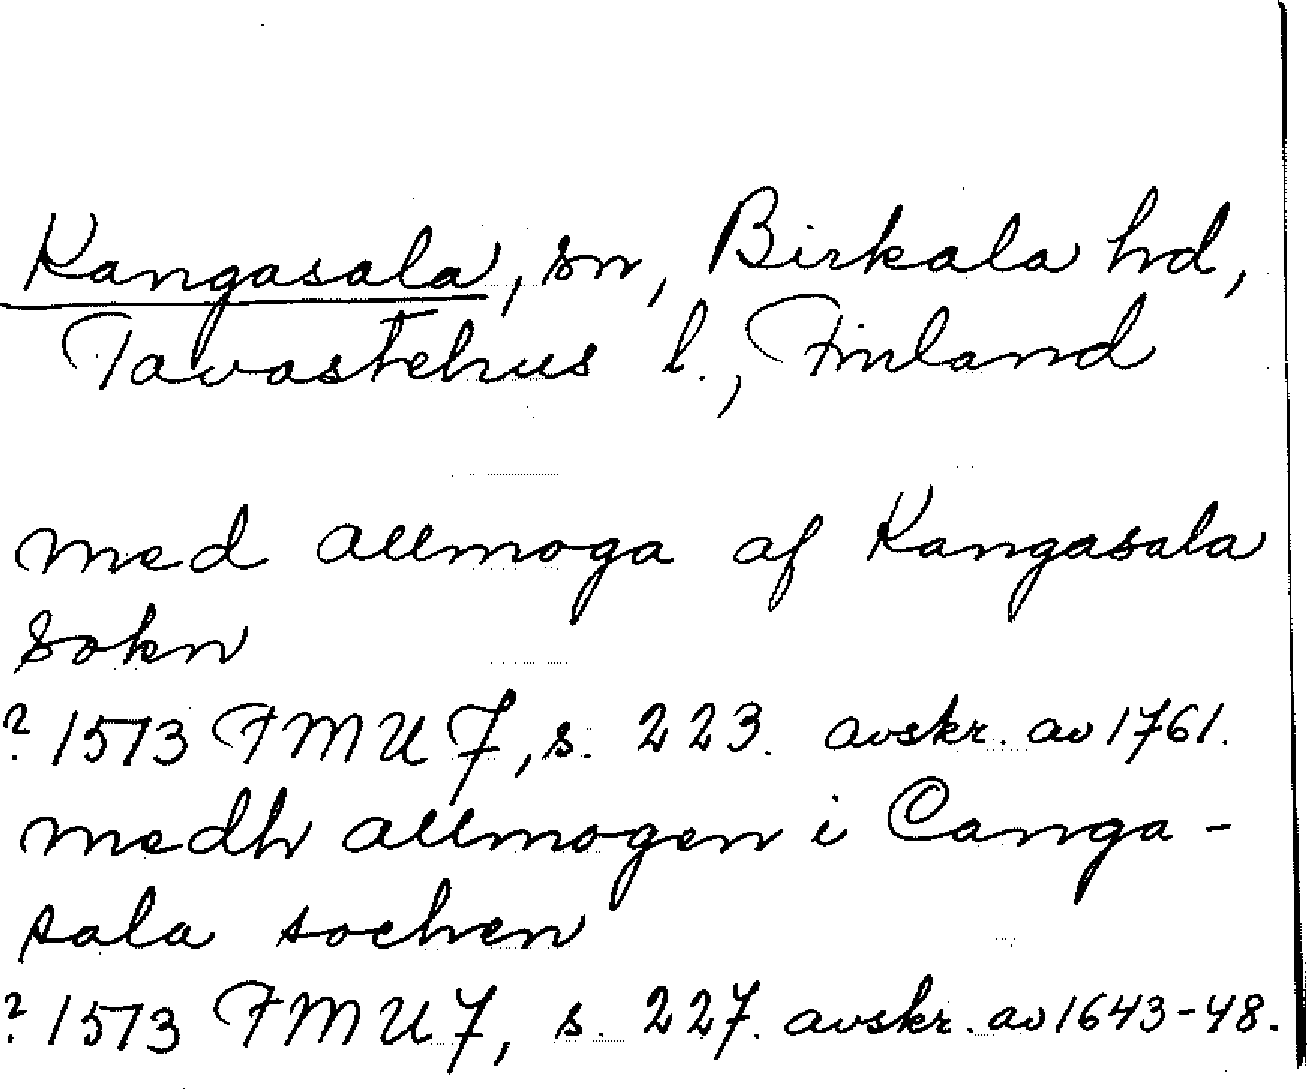 Kangasala, sn, Birkala hd,
Tavastehus l., Finland
med allmoga af Kangasala
Sokn
? 1513 FMU 7, s. 223. avskr. av 1761.
medh allmogen i Canga-
sala sochen
? 1513 FMU 7, s. 227. avskr. av 1643-48.